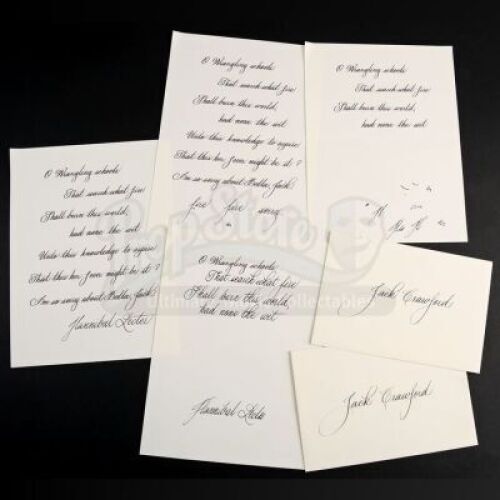 O Wrangling schools
That search what fire
Shall burn this world,
had none the wit
Unto this knowledge to aspire
That this her fever might be it?
I'm so sorry about Bella, Jack.
Hannibal Lecter
O Wrangling schools
That search what fire
Shall burn this world,
had none the wit
Unto this knowledge to aspire
That this her fever might be it?
I'm so sorry about Bella, Jack.
fire fire sorry
O Wrangling schools
That search what fire
Shall burn this world,
had none the wit
Hannibal Lecter
O Wrangling schools
That search what fire
Shall burn this world,
had none the wit
Jack Crawford
Jack Crawford
PropStore
Ultimate Collectables